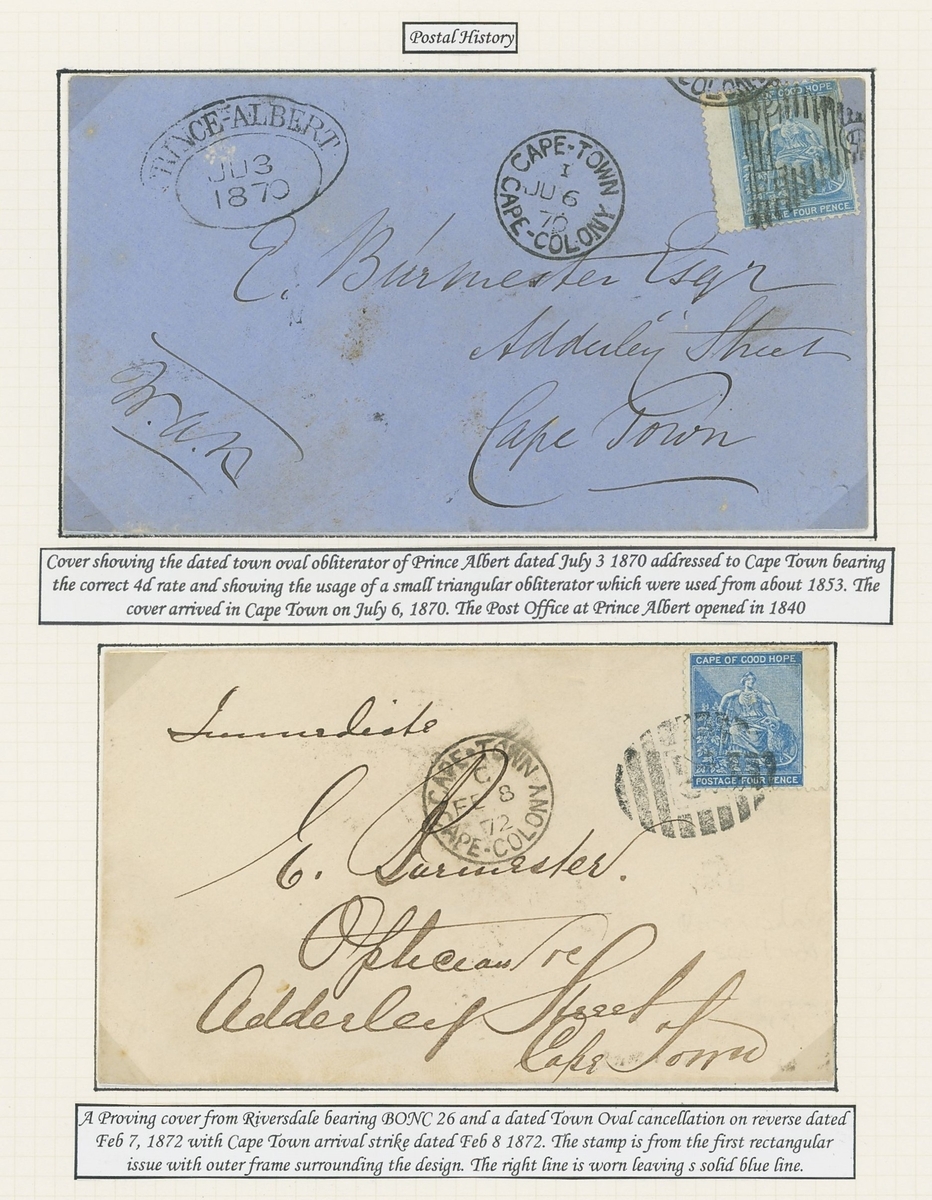 Postal History
PRINCE-ALBERT
JU 3
1870
CAPE-TOWN
1
JU 6
70
CAPE-COLONY
COLONY
OF GOOD HOPE
FOUR PENCE
E. Burmester Esqr
Adderley Street
Cape Town
Cover showing the dated town oval obliterator of Prince Albert dated July 3 1870 addressed to Cape Town bearing
the correct 4d rate and showing the usage of a small triangular obliterator which were used from about 1853. The
cover arrived in Cape Town on July 6, 1870. The Post Office at Prince Albert opened in 1840
CAPE OF GOOD HOPE
POSTAGE FOUR PENCE
Immediate
CAPE-TOWN
C
FE 8
72
CAPE-COLONY
E. Burmester.
Optician
Adderley Street
Cape Town
A Proving cover from Riversdale bearing BONC 26 and a dated Town Oval cancellation on reverse dated
Feb 7, 1872 with Cape Town arrival strike dated Feb 8 1872. The stamp is from the first rectangular
issue with outer frame surrounding the design. The right line is worn leaving s solid blue line.